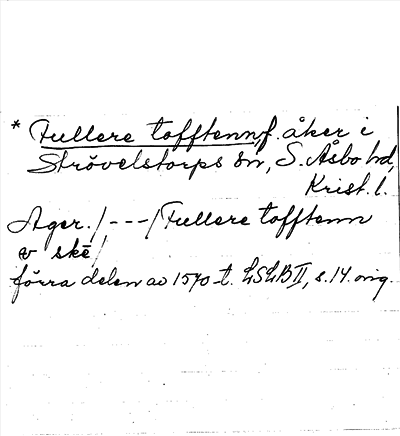 * Fullere tofftenn, f. åker i
Strövelstorps sn, S. Åsbo hd,
Krist. l.
Ager. /---/ Fullere tofftenn
v skē/
förra delen av 1570-t. LSLB II, s. 14. orig.